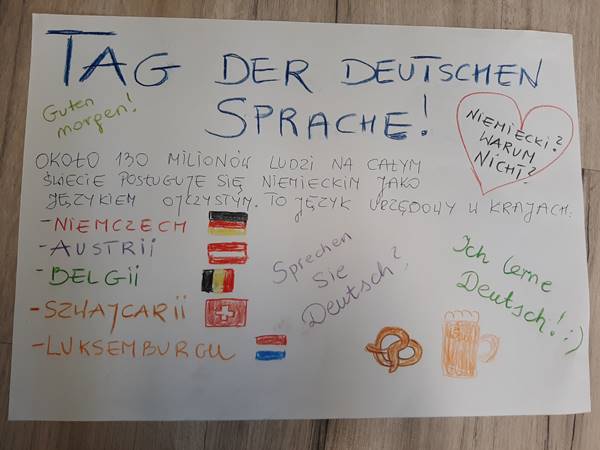 TAG DER DEUTSCHEN
SPRACHE!
Guten
morgen!
NIEMIECKI?
WARUM
NICHT?
OKOŁO 130 MILIONÓW LUDZI NA CAŁYM
ŚWIECIE POSŁUGUJE SIĘ NIEMIECKIM JAKO
JĘZYKIEM OJCZYSTYM. TO JĘZYK URZĘDOWY W KRAJACH:
- NIEMCZECH
- AUSTRII
- BELGII
- SZWAJCARII
- LUKSEMBURGU
Sprechen
Sie
Deutsch?
Ich lerne
Deutsch! :)